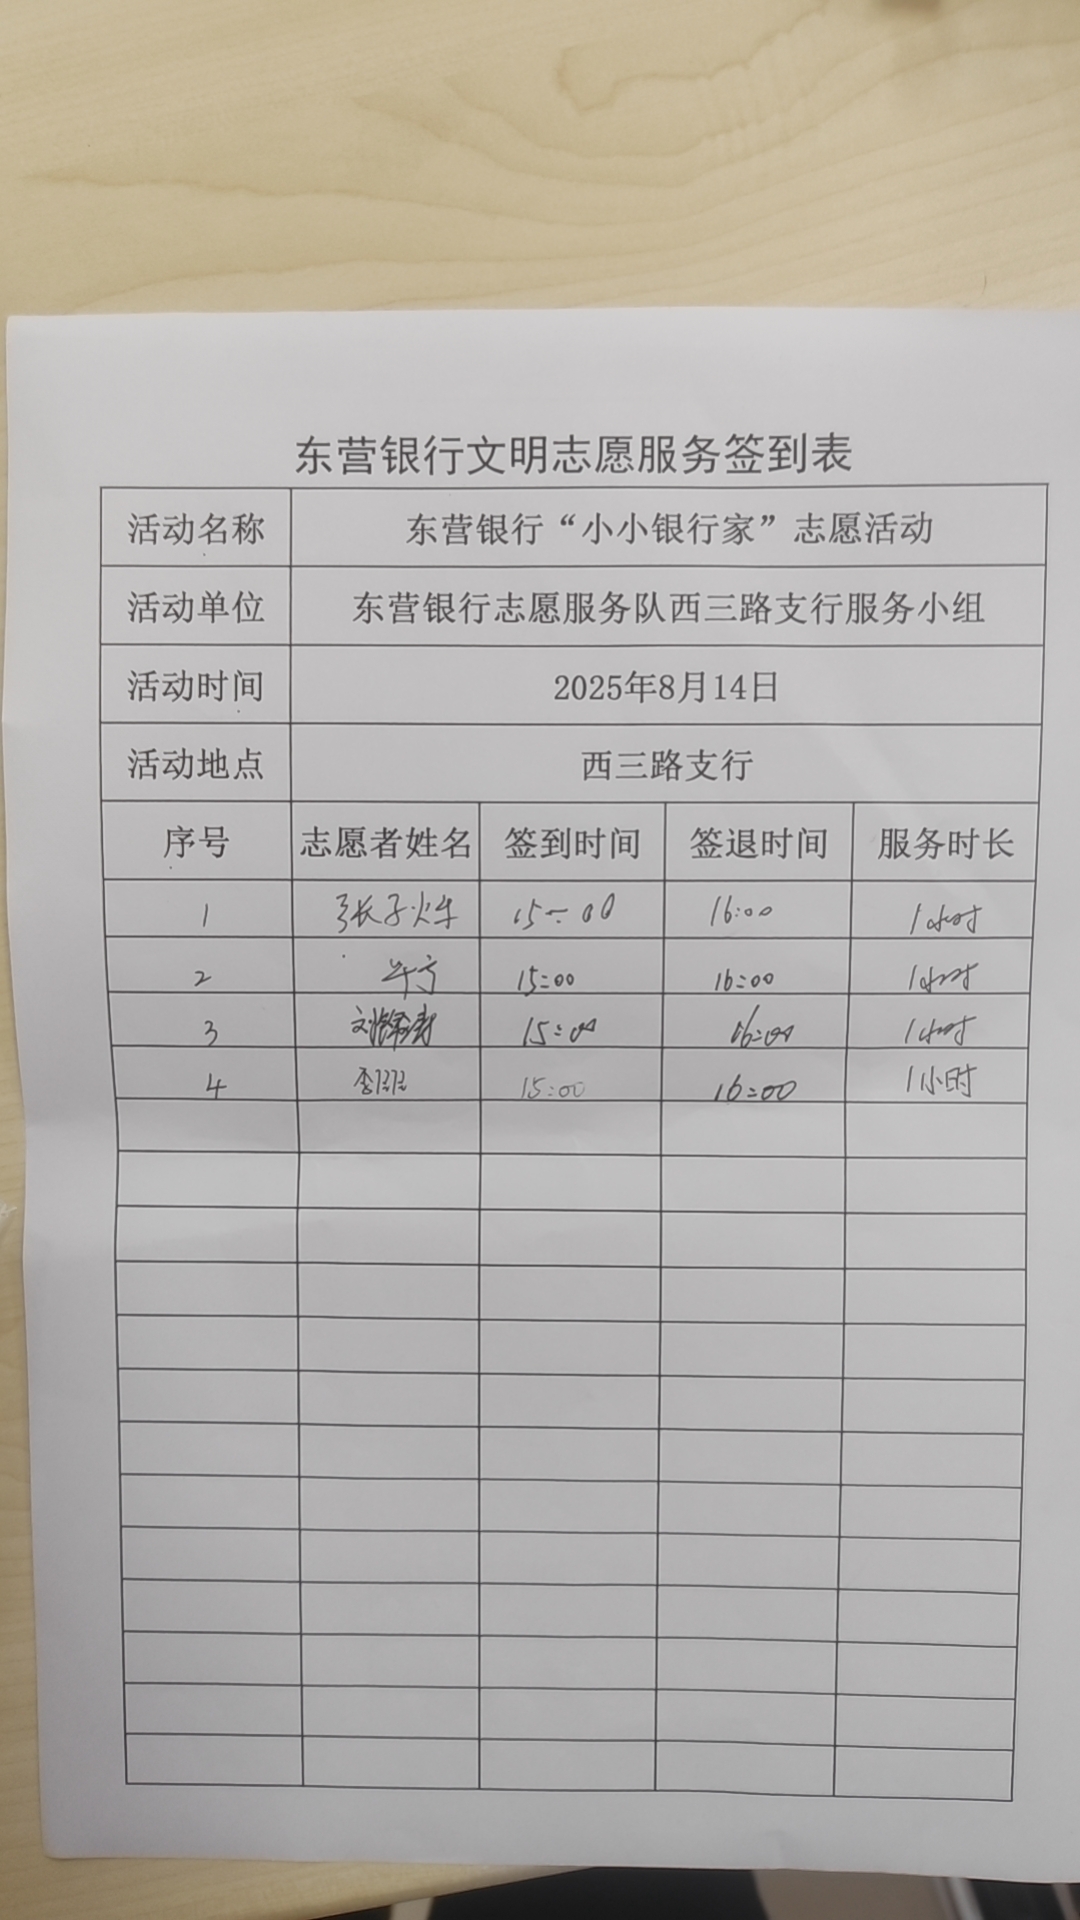 东营银行文明志愿服务签到表
活动名称 东营银行“小小银行家”志愿活动
活动单位 东营银行志愿服务队西三路支行服务小组
活动时间 2025年8月14日
活动地点 西三路支行
序号 志愿者姓名 签到时间 签退时间 服务时长
1 张子烨 15:00 16:00 1小时
2 15:00 16:00 1小时
3 15:00 16:00 1小时
4 15:00 16:00 1小时